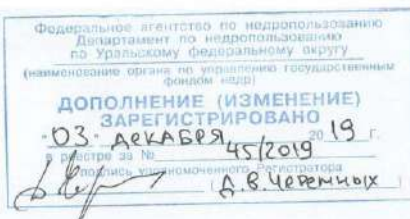 Федеральное агентство по недропользованию
Департамент по недропользованию
по Уральскому федеральному округу
(наименование органа по управлению государственным
фондом недр)
ДОПОЛНЕНИЕ (ИЗМЕНЕНИЕ)
ЗАРЕГИСТРИРОВАНО
"03" ДЕКАБРЯ 2019 г.
в реестре за № 45/2019
подпись уполномоченного Регистратора
(А.В. Черемных)